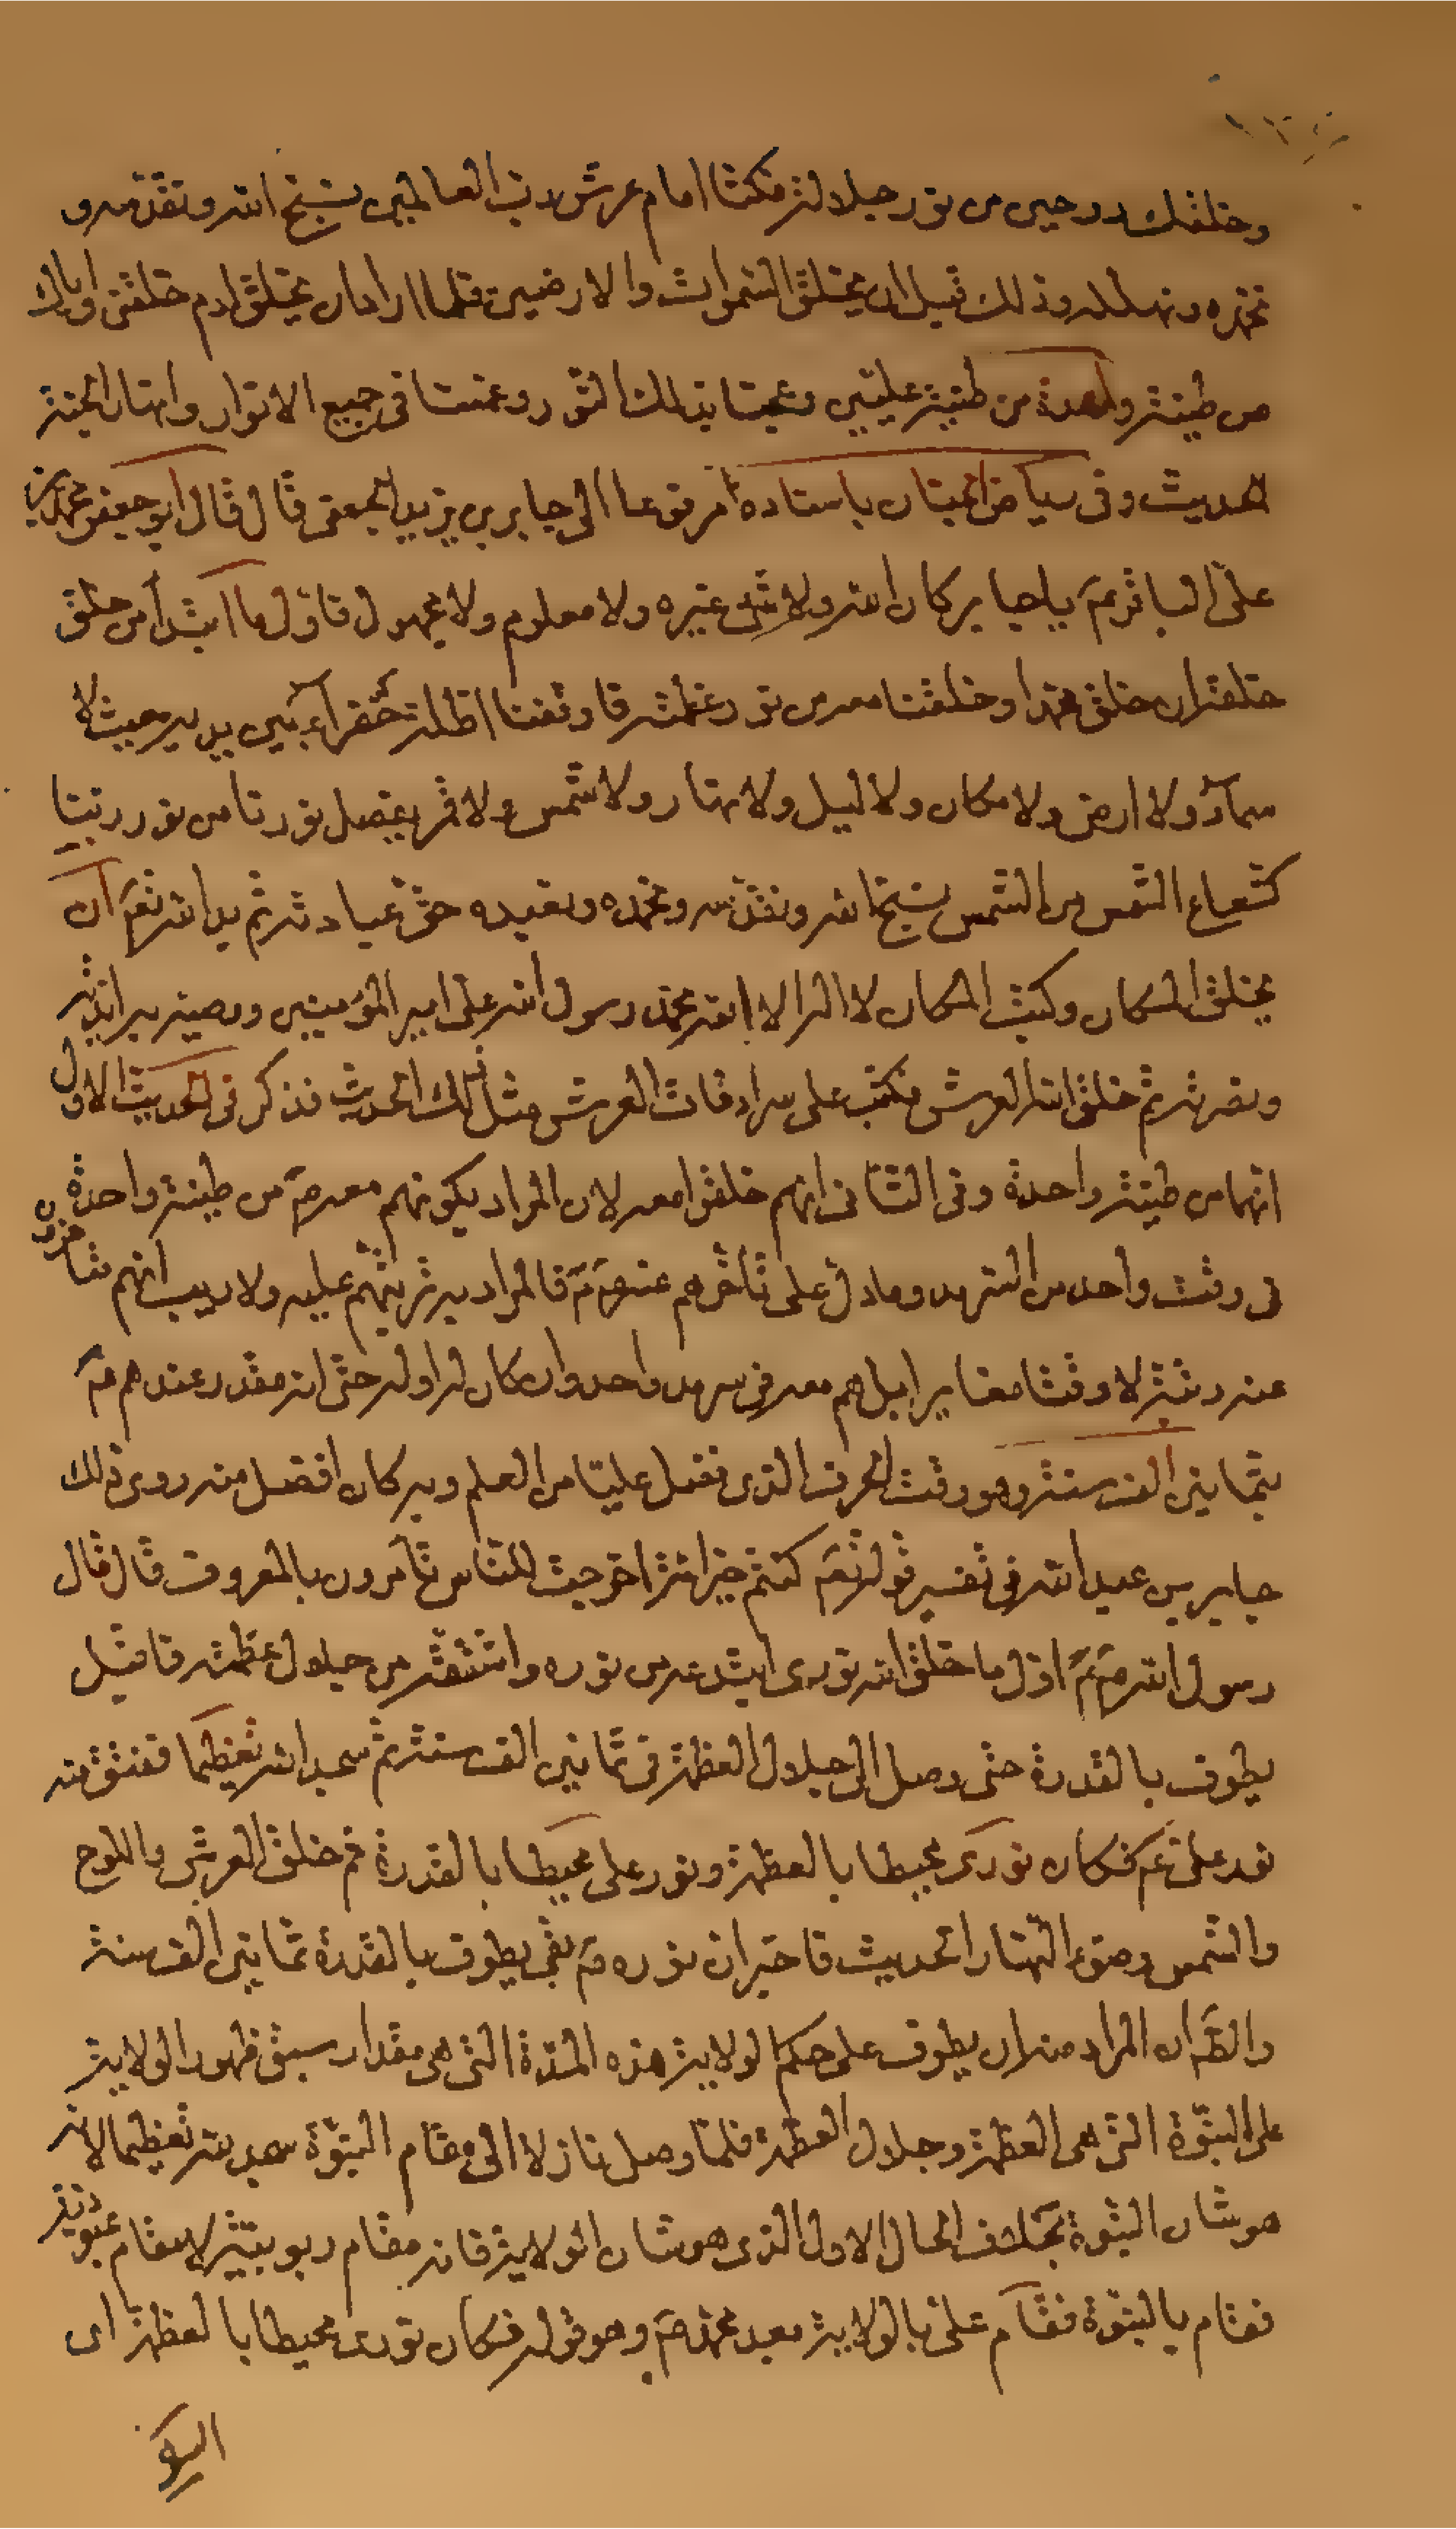 وخلقك روحين من نور جلاله فكنا امام عرش رب العالمين نسبح الله ونقدسه و
نحمده ونهلله وذلك قبل ان يخلق السموات والارضين فلما اراد ان يخلق ادم خلقنى واياك
من طينة واحدة من طينة عليين وعجننا بذلك النور وغمسنا فى جميع الانوار وانهار الجنة
الحديث وفى رياض الجنان باسناده مرفوعا الى جابر بن يزيد الجعفى قال قال ابو جعفر محمد بن
على الباقر عم يا جابر كان الله ولا شئ غيره ولا معلوم ولا مجهول فاول ما ابتدأ من خلق
خلقه ان خلق محمدا وخلقنا معه من نور عظمته فاوقفنا اظلة خضراء بين يديه حيث لا
سماء ولا ارض ولا مكان ولا ليل ولا نهار ولا شمس ولا قمر يفصل نورنا من نور ربنا
كشعاع الشمس من الشمس نسبح الله ونقدسه ونحمده ونعبده حق عبادته ثم بدا لله تعم ان
يخلق المكان وكتب المكان لا اله الا الله محمد رسول الله على امير المؤمنين ووصيه به ايدته
ونصرته ثم خلق الله العرش فكتب على سرادقات العرش مثل ذلك الحديث فذكر فى الحديث الاول
انهما من طينة واحدة وفى الثانى انهم خلقوا معه لان المراد بكونهم معه صم من طينة واحدة
فى وقت واحد من السرمد وما دل على تأخرهم عنه صم فالمراد به ترتبهم عليه ولا ريب انهم متأخرون
عنه رتبة لا وقتا مغايرا بل هم معه فى سرمد واحد وان كان له اوله حتى انه مقدر عندهم عم
بثمانين الف سنة وهو وقت الحرف الذى فضل عليا من العلم وبه كان افضل منه روى ذلك
جابر بن عبد الله فى تفسير قوله تعم كنتم خير امة اخرجت للناس تأمرون بالمعروف قال قال
رسول الله صم اول ما خلق الله نورى ابتدعه من نوره واشتقه من جلال عظمته فاقبل
يطوف بالقدرة حتى وصل الى جلال العظمة فى ثمانين الف سنة ثم سجد لله تعظيما ففتق منه
نور على عم فكان نورى محيطا بالعظمة ونور على محيطا بالقدرة ثم خلق العرش واللوح
والشمس وضوء النهار الحديث فاخبر ان نوره صم بقى يطوف بالقدرة ثمانين الف سنة
والظم ان المراد منه ان يطوف على حكم الولاية هذه المدة التى هى مقدار سبق ظهور الولاية
على النبوة التى هى العظمة وجلال العظمة فلما وصل نازلا الى مقام النبوة سجد لله تعظيما لانه
هو شان النبوة بخلاف الحال الاول الذى هو شان الولاية فانه مقام ربوبية لا مقام عبودية
فقام بالنبوة فقام على بالولاية بعد محمد صم وهو قوله فكان نورى محيطا بالعظمة اى